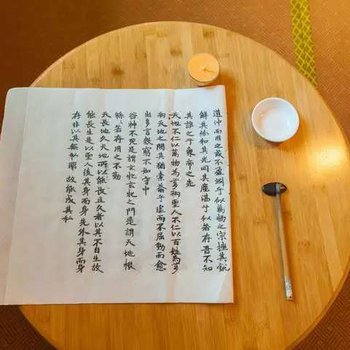 道沖而用之或不盈淵乎似萬物之宗挫其銳
解其紛和其光同其塵湛乎似若存吾不知
其誰之子象帝之先
天地不仁以萬物為芻狗聖人不仁以百姓為芻
狗天地之間其猶橐籥乎虛而不屈動而愈
出多言數窮不如守中
谷神不死是謂玄牝玄牝之門是謂天地根
綿綿若存用之不勤
天長地久天地所以能長且久者以其不自生故
能長生是以聖人後其身而身先外其身而身
存非以其無私耶故能成其私